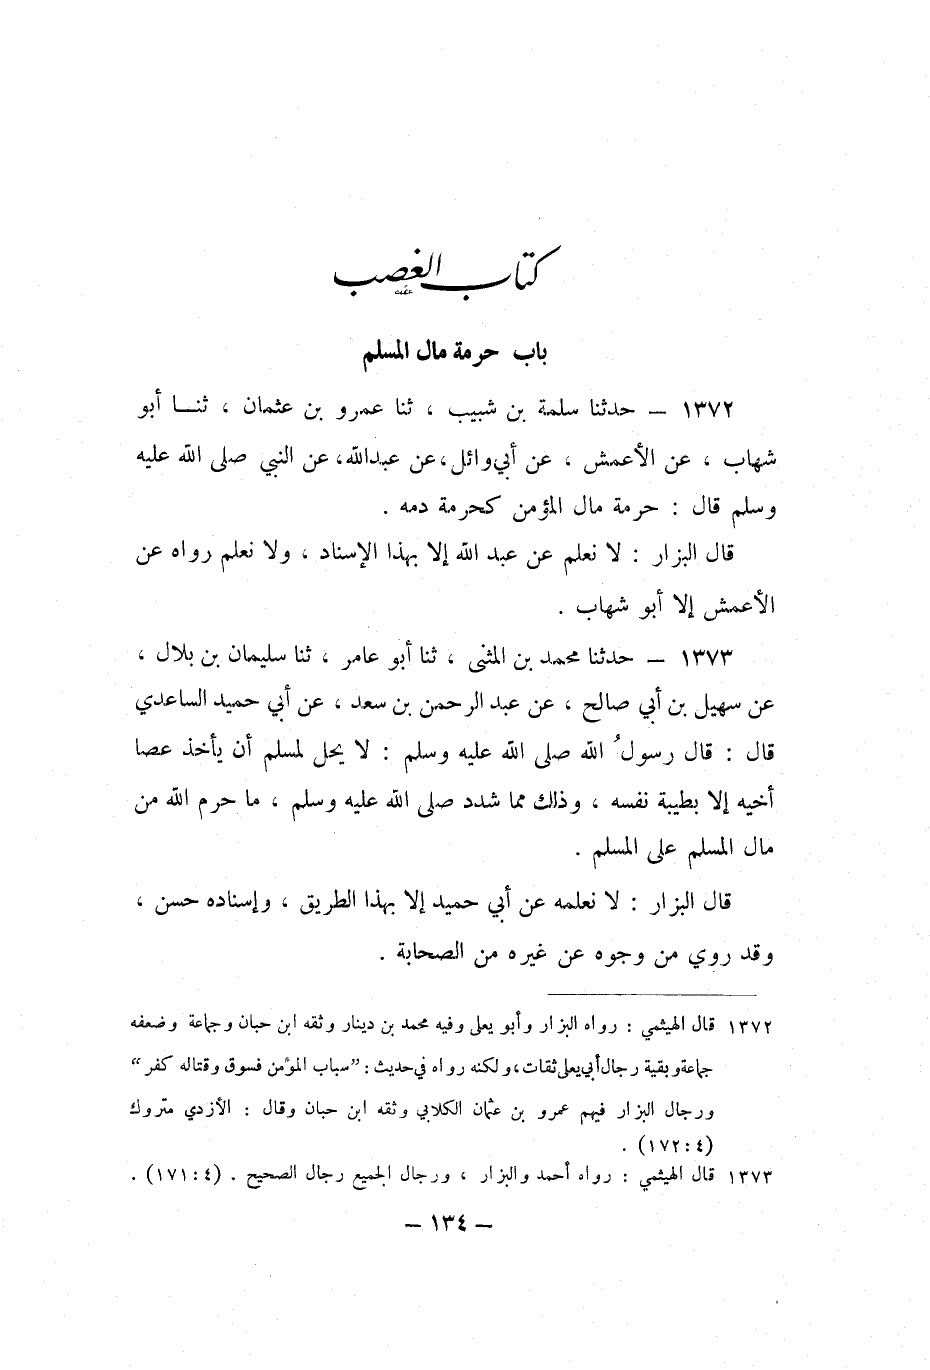 كتاب الغصب
باب حرمة مال المسلم
١٣٧٢ – حدثنا سلمة بن شبيب ، ثنا عمرو بن عثمان ، ثنـــا أبو
شهاب ، عن الأعمش ، عن أبي وائل ، عن عبدالله، عن النبي صلى الله عليه
وسلم قال : حرمة مال المؤمن كحرمة دمه .
قال البزار : لا نعلم عن عبد الله إلا بهذا الإسناد ، ولا نعلم رواه عن
الأعمش إلا أبو شهاب .
١٣٧٣ – حدثنا محمد بن المثنى ، ثنا أبو عامر ، ثنا سليمان بن بلال ،
عن سهيل بن أبي صالح ، عن عبد الرحمن بن سعد ، عن أبي حميد الساعدي
قال : قال رسولُ الله صلى الله عليه وسلم : لا يحل لمسلم أن يأخذ عصا
أخيه إلا بطيبة نفسه ، وذلك مما شدد صلى الله عليه وسلم ، ما حرم الله من
مال المسلم على المسلم .
قال البزار : لا نعلمه عن أبي حميد إلا بهذا الطريق ، وإسناده حسن ،
وقد روي من وجوه عن غيره من الصحابة .
١٣٧٢ قال الهيثمي : رواه البزار وأبو يعلى وفيه محمد بن دينار وثقه ابن حبان وجماعة وضعفه
جماعة وبقية رجال أبي يعلى ثقات، ولكنه رواه في حديث : ”سباب المؤمن فسوق وقتاله كفر“
ورجال البزار فيهم عمرو بن عثمان الكلابي وثقه ابن حبان وقال : الأزدي متروك
(٤ : ١٧٢) .
١٣٧٣ قال الهيثمي : رواه أحمد والبزار ، ورجال الجميع رجال الصحيح . (٤ : ١٧١) .
– ١٣٤ –